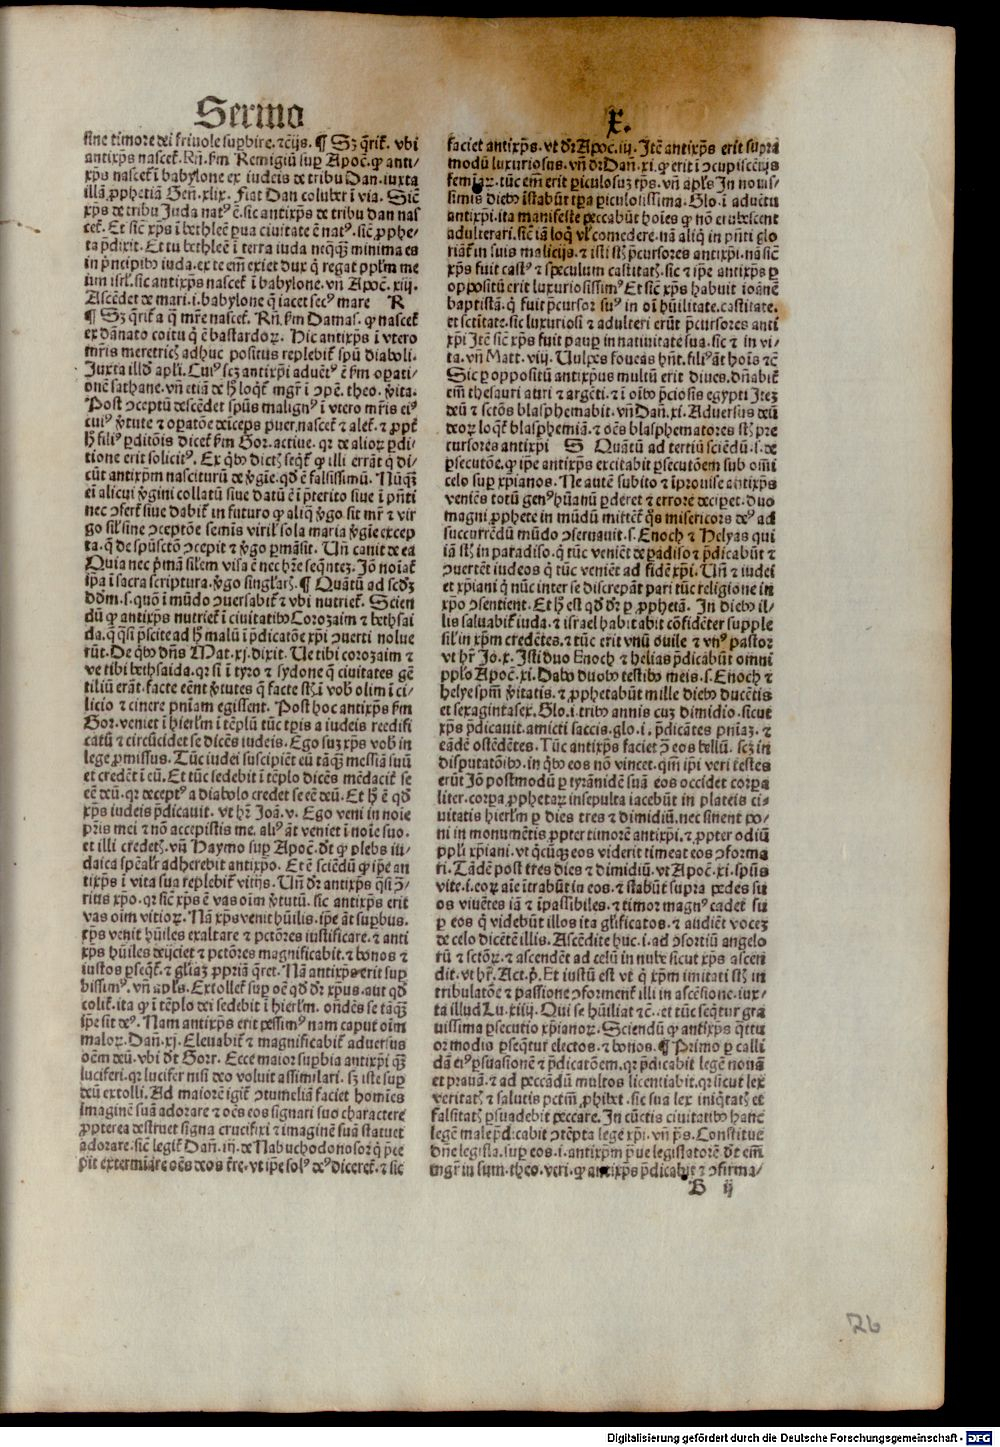 Sermo
X.
sine timore dei friuole suꝑbire. ⁊cͥs. ¶ Sꝫ q̄rit̄. vbi
antixp̄s nascet̄. Rn̄. ẜm Remigiū suꝑ Apoc̄. ꝙ anti-
xp̄s nascet̄ ī babylone ex iudeis de tribu Dan. iuxta
illā ꝓphetiā Gen̄. xlix. Fiat Dan coluber ī via. Sic̄
xp̄s de tribu Juda natꝰ ē. sic antixp̄s de tribu dan nas
cet̄. Et sic̄ xp̄s ī bethleē ꝑua ciuitate ē natꝰ. sic̄ ꝓphe-
ta p̄dixit. Et tu bethleē ī terra iuda neq̄q̄ꝫ minima es
in p̄ncipibꝰ iuda. ex te em̄ exiet dux q̄ regat pp̄lm me
um isrl̄. sic antixp̄s nascet̄ ī babylone. vn̄ Apoc̄. xiij.
Ascēdet de mari .i. babylone q̄ iacet secꝰ mare R
¶ Sꝫ q̄rit̄ a q̄ mr̄e nascet̄. Rn̄. ẜm Damas. ꝙ nascet̄
ex dānato coitu q̄ ē bastardoꝝ. Hic antixp̄s ī vtero
mr̄is meretricꝭ adhuc positus replebit̄ spū diaboli.
Juxta illd̄ apl̄i. Cuiꝰ scꝫ antixp̄i aduētꝰ ē ẜm oꝑati-
onē sathane. vn̄ etiā de h̄ loqt̄ mgr̄ ī ꝯpē. theo. v̄ita.
Post ꝯceptū descēdet spūs malignꝰ ī vtero mr̄is eiꝰ
cuiꝰ v̄tute ⁊ oꝑatōe deīceps puer nascet̄ ⁊ alet̄. ⁊ ꝓpt̄
h̄ filiꝰ ꝑditōis dicet̄ ẜm Gor. actiue. qꝛ de alioꝝ ꝑdi-
tione erit solicitꝰ. Ex q̄bꝰ dictꝭ seqt̄ ꝙ illi errāt q̄ di-
cūt antixp̄m nasciturū de v̄gīe. qd̄ ē falsissimū. Nūq̄ꝫ
ei alicui v̄gini collatū siue datū ē ī p̄terito siue ī p̄nti
nec ꝯfert̄ siue dabit̄ in futuro ꝙ aliq̄ v̄go sit mr̄ ⁊ vir
go sil̄ sine ꝯceptōe semīs viril̄ sola maria v̄gīe excep
ta. q̄ de spūsctō ꝯcepit ⁊ v̄go ꝑmāsit. Vn̄ canit de ea
Quia nec p̄mā sil̄em visa ē nec hr̄e seq̄ntez. Jō noīat̄
ip̄a ī sacra scriptura. v̄go singl̄arꝭ. ¶ Quātū ad scd̄ꝫ
dd̄m. s. quō ī mūdo ꝯuersabit̄ ⁊ vbi nutriet̄. Scien
dū ꝙ antixp̄s nutriet̄ ī ciuitatibꝰ Corozaim ⁊ bethsai
da. q̄ q̄si p̄scite ad h̄ malū ī p̄dicatōe xp̄i ꝯuerti nolue
rūt. De q̄bꝰ dn̄s Mat. xj. dixit. Ue tibi corozaim ⁊
ve tibi bethsaida. qꝛ si ī tyro ⁊ sydone q̄ ciuitates gē
tiliū erāt. facte eēnt v̄tutes q̄ facte st̄ ī vobꝭ olim ī ci-
licio ⁊ cinere pn̄iam egissent. Post hoc antixp̄s ẜm
Gor. veniet ī hierl̄m ī tēplū tūc tꝑis a iudeis reedifi
catū ⁊ circūcidet se dicēs iudeis. Ego suꝫ xp̄s vobꝭ in
lege ꝓmissus. Tūc iudei suscipiēt eū tāq̄ꝫ messiā suū
et credēt ī eū. Et tūc sedebit ī tēplo dicēs mēdacit̄ se
eē deū. qꝛ deceptꝰ a diabolo credet se eē deū. Et h̄ ē qd̄
xp̄s iudeis p̄dicauit. vt hr̄ Joā. v. Ego veni in noie
pris mei ⁊ nō accepistis me. aliꝰ āt veniet ī noīe suo.
et illi credetꝭ. vn̄ Haymo suꝑ Apoc̄. dt̄ ꝙ plebs iu-
daica sp̄cal̄r adherebit antixp̄o. Et ē sciēdū ꝙ ip̄e an
tixp̄s ī vita sua replebit̄ vitijs. Un̄ dr̄ antixp̄s q̄si ꝯ-
rius xp̄o. qꝛ sic̄ xp̄s ē vas oīm v̄tutū. sic antixp̄s erit
vas oīm vitioꝝ. Nā xp̄s venit hūilis. ip̄e āt suꝑbus.
xp̄s venit hūiles exaltare ⁊ pctōres iustificare. ⁊ anti
xp̄s hūiles deijciet ⁊ pctōres magnificabit. ⁊ bonos ⁊
iustos ꝑseqt̄. ⁊ gl̄iaꝫ ꝓpriā q̄ret. Nā antixp̄s erit suꝑ
bissimꝰ. vn̄ apl̄s. Extollet̄ suꝑ oē qd̄ dr̄ xp̄us. aut qd̄
colit̄. ita ꝙ ī tēplo dei sedebit ī hierl̄m. ondēs se tāq̄ꝫ
ip̄e sit deꝰ. Nam antixp̄s erit pessimꝰ nam caput oīm
maloꝝ. Dan̄. xj. Eleuabit̄ ⁊ magnificabit̄ aduersus
oēm deū. vbi dt̄ Gorr. Ecce maior suꝑbia antixp̄i q̄ꝫ
luciferi. qꝛ lucifer nisi deo voluit assimilari. sꝫ iste suꝑ
deū extolli. Ad maiorē igit̄ ꝯtumeliā faciet homīes
imaginē suā adorare ⁊ oēs eos signati suo charactere
ꝓpterea destruet signa crucifixi ⁊ imaginē suā statuet
adorare. sic̄ legit̄ Dan̄. iij. de Nabuchodonosor q̄ p̄ce
pit extermiare oēs deos tr̄e. vt ip̄e solꝰ deꝰ diceret̄. ⁊ sic
faciet antixp̄s. vt dr̄ Apoc̄. iij. Itē antixp̄s erit supra
modū luxuriosus. vn̄ dr̄ Dan̄. xi. ꝙ erit ī ꝯcupiscētijs
femīaꝝ. tūc em̄ erit ꝑiculosuꝫ tp̄s. vn̄ apl̄s In nouis-
simis diebꝰ īstabūt tꝑa ꝑiculosissima. Glo. ī aduētu
antixp̄i. ita manifeste peccabūt hoīes ꝙ nō erubescent
adulterari. sic̄ iā loq̄ vl̄ comedere. nā aliq̄ in p̄nti glo
riāt̄ in suis malicijs. ⁊ isti st̄ p̄cursores antixp̄i. nā sic̄
xp̄s fuit castꝰ ⁊ speculum castitatꝭ. sic ⁊ ip̄e antixp̄s ꝑ
oppositū erit luxuriosissimꝰ Et sic̄ xp̄s habuit ioānē
baptistā. q̄ fuit p̄cursor suꝰ in oī hūilitate. castitate.
et sctītate. sic luxuriosi ⁊ adulteri erūt p̄cursores anti
xp̄i Itē sic̄ xp̄s fuit pauꝑ in natiuitate sua. sic ⁊ in vi-
ta. vn̄ Matt. viij. Vulpes foueas hn̄t. filiꝰ āt hoīs ⁊c̄
Sic ꝑ oppositū antixp̄us multū erit diues. dn̄abit̄
em̄ thesauri auri ⁊ argēti. ⁊ ī oībꝰ p̄ciosis egypti Iteꝫ
deū ⁊ sctōs blasphemabit. vn̄ Dan̄. xi. Aduersus deū
deoꝝ loqt̄ blasphemiā. ⁊ oēs blasphematores st̄ pre
cursores antixp̄i S Quātū ad tertiū sciēdū .i. de
ꝑsecutōe. ꝙ ip̄e antixp̄s excitabit ꝑsecutōem sub om̄i
celo suꝑ xp̄ianos. Ne autē subito ⁊ īprouise antixp̄s
veniēs totū genꝰ hūanū ꝑderet ⁊ errore deciꝑet. duo
magni ꝓphete in mūdū mittēt̄ q̄s misericors deꝰ ad
succurrēdū mūdo ꝯseruauit. s. Enoch ⁊ Helyas qui
iā st̄ in paradiso. q̄ tūc veniēt de ꝑadiso ⁊ p̄dicabūt ⁊
ꝯuertēt iudeos q̄ tūc veniēt ad fidē xp̄i. Un̄ ⁊ iudei
et xp̄iani q̄ nūc inter se discrepāt pari tūc religione in
xp̄o ꝯsentient. Et h̄ est qd̄ dr̄ ꝑ ꝓphetā. In diebꝰ il-
lis saluabit̄ iuda. ⁊ israel habitabit cōfidēter supple
sil̄ in xp̄m credētes. ⁊ tūc erit vnū ouile ⁊ vnꝰ pastor
vt hr̄ Jo. x. Isti duo Enoch ⁊ helias p̄dicabūt omni
pp̄lo Apoc̄. xi. Dabo duobꝰ testibꝰ meis. s. Enoch ⁊
helye spm̄ v̄itatis. ⁊ ꝓphetabūt mille diebꝰ ducētis
et sexagintasex. Glo. i. tribꝰ annis cuꝫ dimidio. sicut
xp̄s p̄dicauit. amicti saccis. glo. i. p̄dicātes pn̄iaꝫ. ⁊
eādē ostēdētes. Tūc antixp̄s faciet ꝯ̄ eos bellū. scꝫ in
disputatōibꝰ. in q̄bꝰ eos nō vincet. qm̄ ip̄i veri testes
erūt Jō postmodū ꝑ tyrānidē suā eos occidet corꝑa
liter. corꝑa ꝓphetaꝝ insepulta iacebūt in plateis ci-
uitatis hierl̄m ꝑ dies tres ⁊ dimidiū. nec sinent po-
ni in monumētis ꝓpter timorē antixp̄i. ⁊ ꝓpter odiū
pp̄li xp̄iani. vt q̄cūq̄ꝫ eos viderit timeat eos ꝯforma
ri. Tādē post tres dies ⁊ dimidiū. vt Apoc̄. xi. spūs
vite .i. eoꝝ aīe ītrabūt in eos. ⁊ stabūt supra pedes su
os viuētes iā ⁊ īpassibiles. ⁊ timor magnꝰ cadet su
ꝑ eos q̄ videbūt illos ita gl̄ificatos. ⁊ audiēt voceꝫ
de celo dicētē illis. Ascēdite huc .i. ad ꝯsortiū angelo
rū ⁊ sctōꝝ. ⁊ ascendēt ad celū in nube sicut xp̄s ascen
dit. vt hr̄. Act. p̄. Et iustū est vt q̄ xp̄m imitati st̄ in
tribulatōe ⁊ passione ꝯforment̄ illi in ascēsione. iux-
ta illud Lu. xiiij. Qui se hūiliat ⁊c̄.. et tūc seq̄tur gra
uissima ꝑsecutio xp̄ianoꝝ. Sciendū ꝙ antixp̄s q̄ttu
or modis ꝑseq̄tur electos. ⁊ bonos. ¶ Primo ꝑ calli
dā eiꝰ ꝑsuasionē ⁊ p̄dicatōem. qꝛ p̄dicabit legē nouā
et prauā. ⁊ ad peccādū multos licentiabit. qꝛ sicut lex
veritatꝭ ⁊ salutis pctm̄ ꝓhibet. sic sua lex iniq̄tatꝭ et
falsitatꝭ ꝑsuadebit peccare. In cūctis ciuitatibꝰ hanc
legē male p̄dicabit ⁊ ꝯtēpta lege xp̄i. vn̄ p̄s. Constitue
dn̄e legisla. suꝑ eos .i. antixp̄m p̄ue legislatorē dt̄ em̄
mgr̄ in sum. theo. veri. ꝙ antixp̄s p̄dicabit ⁊ ꝯfirma-
B ij
76
Digitalisierung gefördert durch die Deutsche Forschungsgemeinschaft - DFG